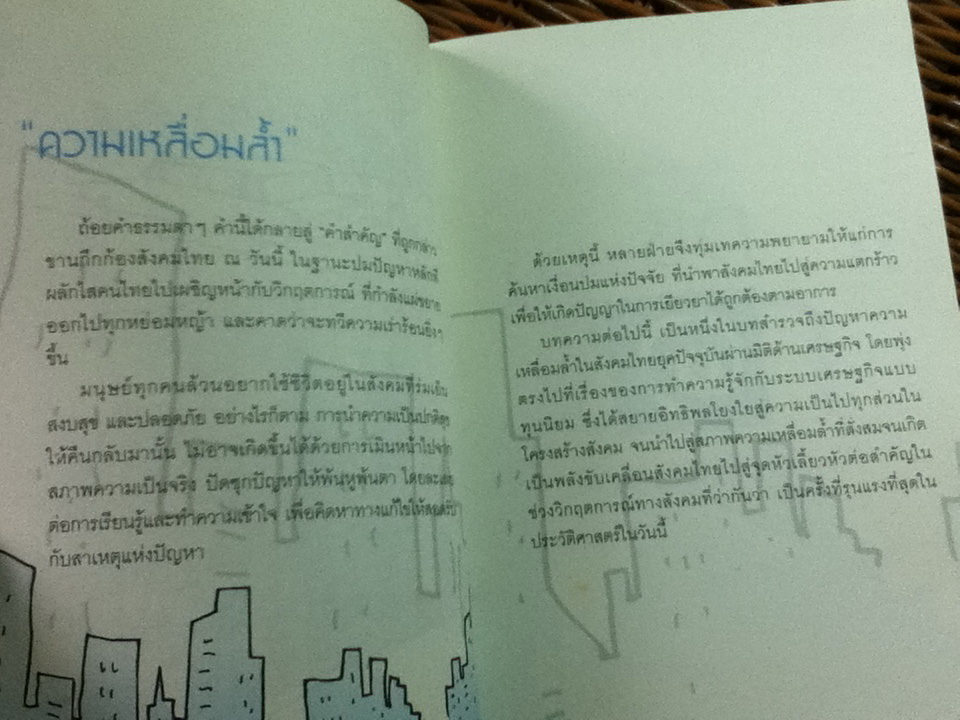 "ความเหลื่อมล้ำ"
ถ้อยคำธรรมดาๆ คำนี้ได้กลายสู่ "คำสำคัญ" ที่ถูกกล่าว
ขานถึกก้องสังคมไทย ณ วันนี้ ในฐานะปมปัญหาหลักที่
ผลักไสคนไทยไปเผชิญหน้ากับวิกฤตการณ์ ที่กำลังแผ่ขยาย
ออกไปทุกหย่อมหญ้า และคาดว่าจะทวีความเร่าร้อนยิ่งๆ
ขึ้น
มนุษย์ทุกคนล้วนอยากใช้ชีวิตอยู่ในสังคมที่ร่มเย็น
สงบสุข และปลอดภัย อย่างไรก็ตาม การนำความเป็นปกติสุข
ให้คืนกลับมานั้น ไม่อาจเกิดขึ้นได้ด้วยการเมินหน้าไปจาก
สภาพความเป็นจริง ปัดซุกปัญหาให้พ้นหูพ้นตา โดยละเลย
ต่อการเรียนรู้และทำความเข้าใจ เพื่อคิดหาทางแก้ไขให้สอดรับ
กับสาเหตุแห่งปัญหา
ด้วยเหตุนี้ หลายฝ่ายจึงทุ่มเทความพยายามให้แก่การ
ค้นหาเงื่อนปมแห่งปัจจัย ที่นำพาสังคมไทยไปสู่ความแตกร้าว
เพื่อให้เกิดปัญญาในการเยียวยาได้ถูกต้องตามอาการ
บทความต่อไปนี้ เป็นหนึ่งในบทสำรวจถึงปัญหาความ
เหลื่อมล้ำในสังคมไทยยุคปัจจุบันผ่านมิติด้านเศรษฐกิจ โดยพุ่ง
ตรงไปที่เรื่องของการทำความรู้จักกับระบบเศรษฐกิจแบบ
ทุนนิยม ซึ่งได้สยายอิทธิพลโยงใยสู่ความเป็นไปทุกส่วนใน
โครงสร้างสังคม จนนำไปสู่สภาพความเหลื่อมล้ำที่สั่งสมจนเกิด
เป็นพลังขับเคลื่อนสังคมไทยไปสู่จุดหัวเลี้ยวหัวต่อสำคัญใน
ช่วงวิกฤตการณ์ทางสังคมที่ว่ากันว่า เป็นครั้งที่รุนแรงที่สุดใน
ประวัติศาสตร์ในวันนี้